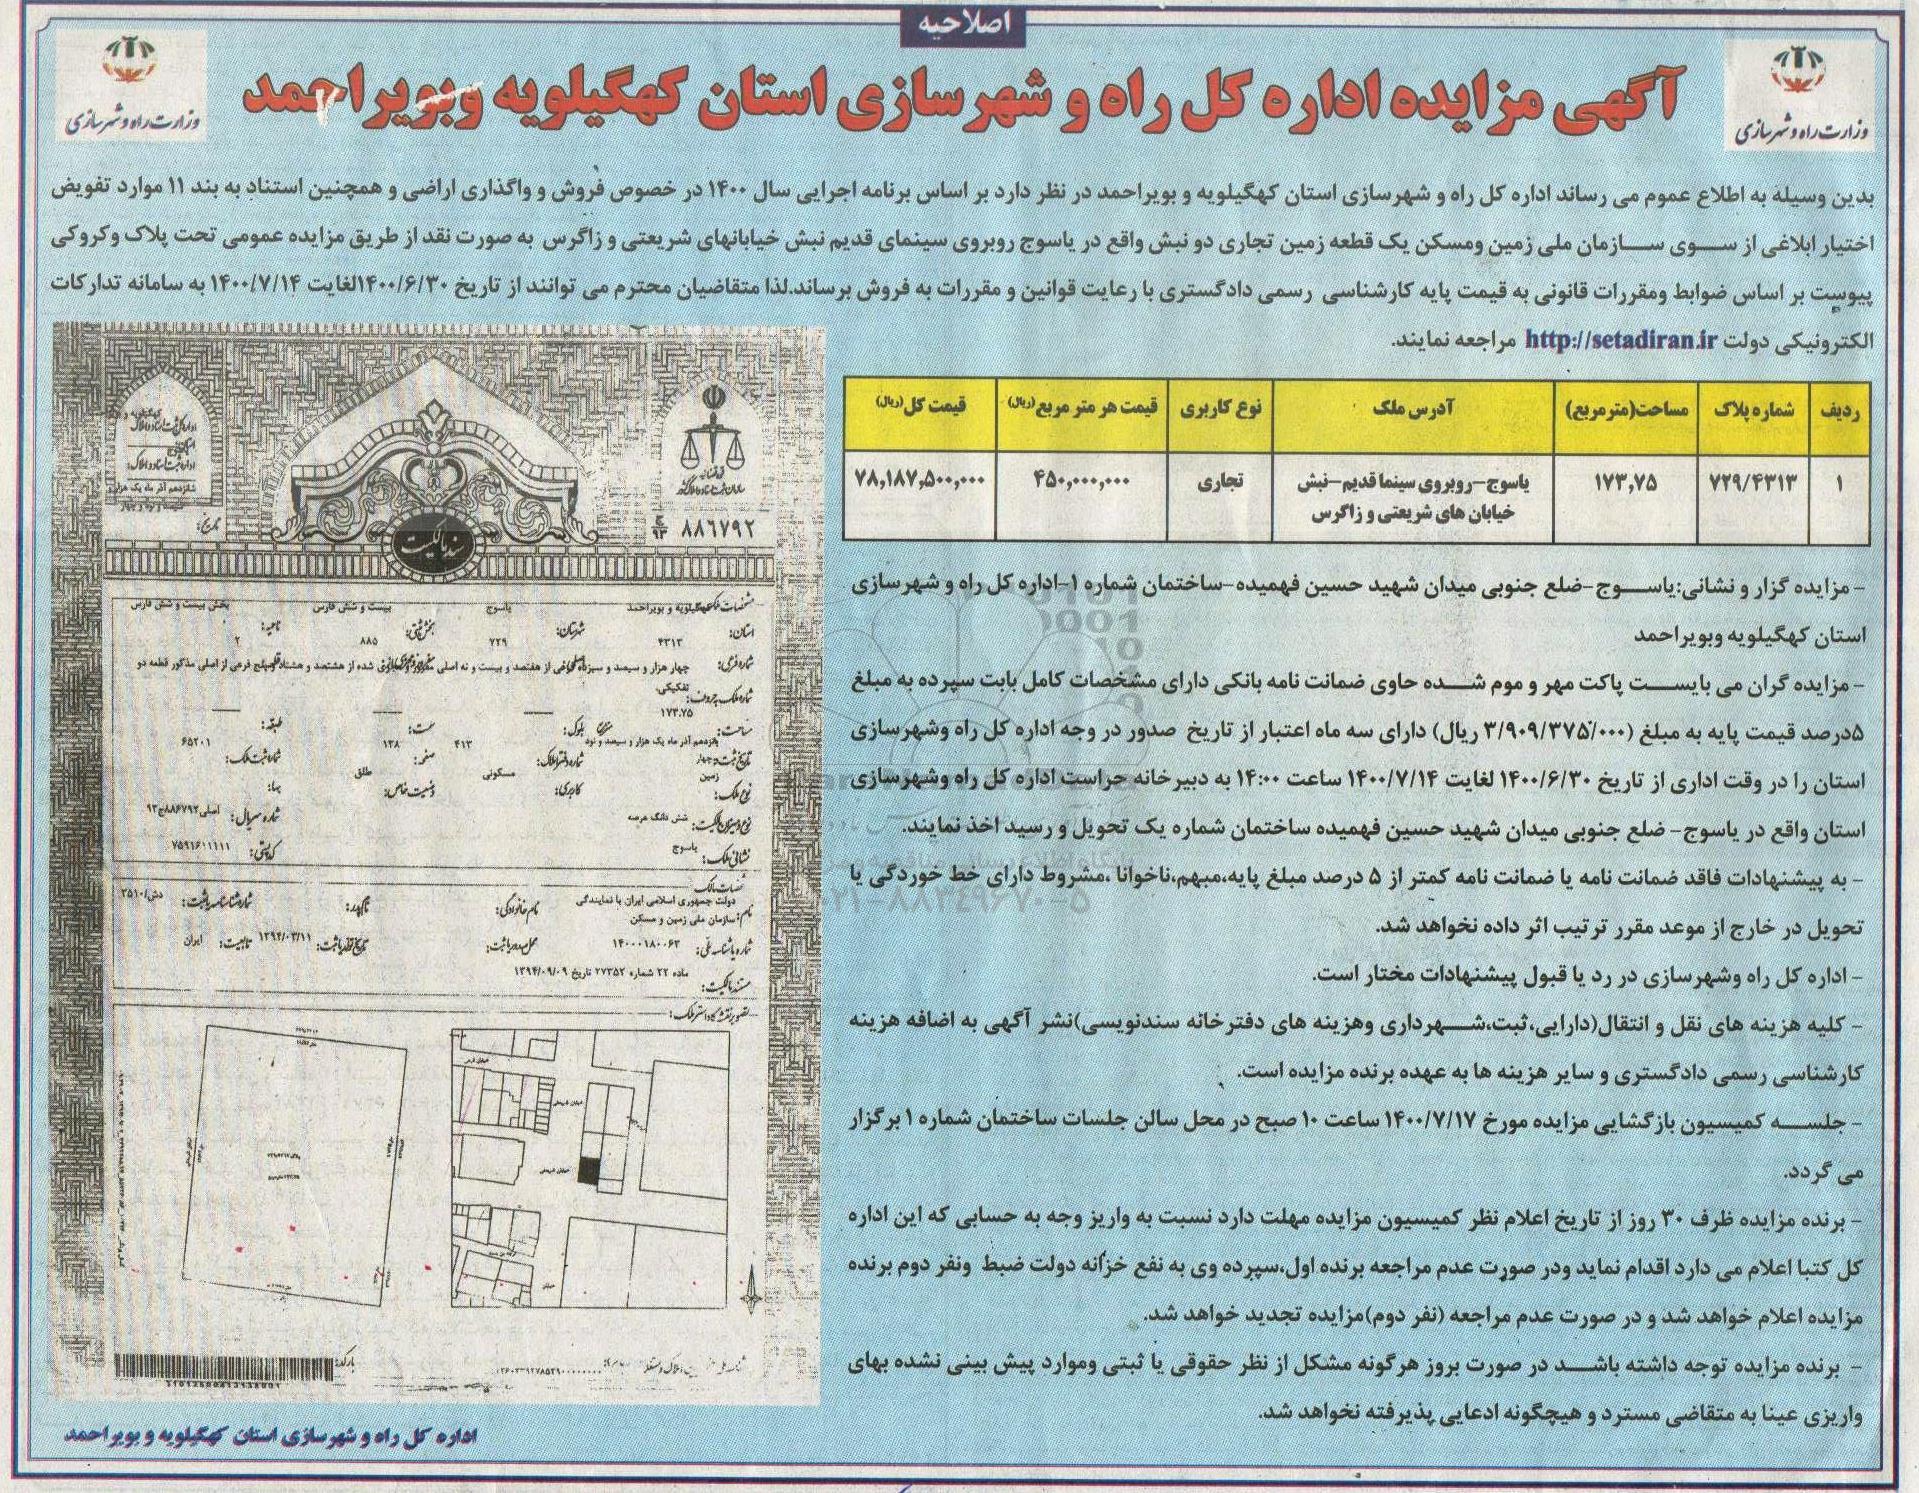 اصلاحیه
آگهی مزایده اداره کل راه و شهرسازی استان کهگیلویه وبویراحمد
وزارت راه و شهرسازی
وزارت راه و شهرسازی
بدین وسیله به اطلاع عموم می رساند اداره کل راه و شهرسازی استان کهگیلویه و بویراحمد در نظر دارد بر اساس برنامه اجرایی سال ۱۴۰۰ در خصوص فروش و واگذاری اراضی و همچنین استناد به بند ۱۱ موارد تفویض
اختیار ابلاغی از سوی سازمان ملی زمین ومسکن یک قطعه زمین تجاری دو نبش واقع در یاسوج روبروی سینمای قدیم نبش خیابانهای شریعتی و زاگرس به صورت نقد از طریق مزایده عمومی تحت پلاک وکروکی
پیوست بر اساس ضوابط ومقررات قانونی به قیمت پایه کارشناسی رسمی دادگستری با رعایت قوانین و مقررات به فروش برساند.لذا متقاضیان محترم می توانند از تاریخ ۱۴۰۰/۶/۳۰لغایت ۱۴۰۰/۷/۱۴ به سامانه تدارکات
الکترونیکی دولت http://setadiran.ir مراجعه نمایند.
ردیف شماره پلاک مساحت(مترمربع) آدرس ملک نوع کاربری قیمت هر متر مربع(ریال) قیمت کل(ریال)
۱ ۷۲۹/۴۳۱۳ ۱۷۳,۷۵ یاسوج-روبروی سینما قدیم-نبش تجاری ۴۵۰,۰۰۰,۰۰۰ ۷۸,۱۸۷,۵۰۰,۰۰۰
خیابان های شریعتی و زاگرس
- مزایده گزار و نشانی:یاسوج-ضلع جنوبی میدان شهید حسین فهمیده-ساختمان شماره ۱-اداره کل راه و شهرسازی
استان کهگیلویه وبویراحمد
- مزایده گران می بایست پاکت مهر و موم شده حاوی ضمانت نامه بانکی دارای مشخصات کامل بابت سپرده به مبلغ
۵درصد قیمت پایه به مبلغ (۳/۹۰۹/۳۷۵/۰۰۰ ریال) دارای سه ماه اعتبار از تاریخ صدور در وجه اداره کل راه وشهرسازی
استان را در وقت اداری از تاریخ ۱۴۰۰/۶/۳۰ لغایت ۱۴۰۰/۷/۱۴ ساعت ۱۴:۰۰ به دبیرخانه حراست اداره کل راه وشهرسازی
استان واقع در یاسوج- ضلع جنوبی میدان شهید حسین فهمیده ساختمان شماره یک تحویل و رسید اخذ نمایند.
- به پیشنهادات فاقد ضمانت نامه یا ضمانت نامه کمتر از ۵ درصد مبلغ پایه،مبهم،ناخوانا ،مشروط دارای خط خوردگی یا
تحویل در خارج از موعد مقرر ترتیب اثر داده نخواهد شد.
- اداره کل راه وشهرسازی در رد یا قبول پیشنهادات مختار است.
- کلیه هزینه های نقل و انتقال(دارایی،ثبت،شهرداری وهزینه های دفترخانه سندنویسی)نشر آگهی به اضافه هزینه
کارشناسی رسمی دادگستری و سایر هزینه ها به عهده برنده مزایده است.
- جلسه کمیسیون بازگشایی مزایده مورخ ۱۴۰۰/۷/۱۷ ساعت ۱۰ صبح در محل سالن جلسات ساختمان شماره ۱ برگزار
می گردد.
- برنده مزایده ظرف ۳۰ روز از تاریخ اعلام نظر کمیسیون مزایده مهلت دارد نسبت به واریز وجه به حسابی که این اداره
کل کتبا اعلام می دارد اقدام نماید ودر صورت عدم مراجعه برنده اول،سپرده وی به نفع خزانه دولت ضبط ونفر دوم برنده
مزایده اعلام خواهد شد و در صورت عدم مراجعه (نفر دوم)مزایده تجدید خواهد شد.
- برنده مزایده توجه داشته باشد در صورت بروز هرگونه مشکل از نظر حقوقی یا ثبتی وموارد پیش بینی نشده بهای
واریزی عینا به متقاضی مسترد و هیچگونه ادعایی پذیرفته نخواهد شد.
قوه قضائیه
سازمان ثبت اسناد و املاک کشور
۸۸۶۷۹۲
سند مالکیت
تاریخ:
کهگیلویه و بویراحمد یاسوج بیست و شش فارس بخش بیست و شش فارس
استان: شهرستان: بخش ثبتی: ناحیه:
۴۳۱۳ ۷۲۹ ۸۸۵ ۲
شماره فرعی:
تفکیکی.
۱۷۳.۷۵
مساحت: بلوک: سمت: طبقه:
۴۱۳ ۱۳۸ ۶۵۲۰۱
شماره دفتر املاک: صفحه: شماره ثبت ملک:
زمین مسکونی طلق
نوع ملک: کاربری: وضعیت خاص: بهاء:
شش دانگ عرصه
شماره سریال:
یاسوج
نشانی ملک: کدپستی: ۷۵۹۱۶۰۱۱۱۱
مشخصات مالک
دولت جمهوری اسلامی ایران با نمایندگی
نام: سازمان ملی زمین و مسکن نام خانوادگی: نام پدر:
۱۴۰۰۰۱۸۰۰۶۳ محل صدور یا ثبت: ۱۳۹۴/۰۳/۱۱ تابعیت: ایران
ماده ۲۲ شماره ۲۷۳۵۲ تاریخ ۱۳۹۴/۰۹/۰۹
مستند مالکیت:
بارکد:
اداره کل راه و شهرسازی استان کهگیلویه و بویراحمد
۰۲۱-۸۸۳۴۹۶۷۰-۵